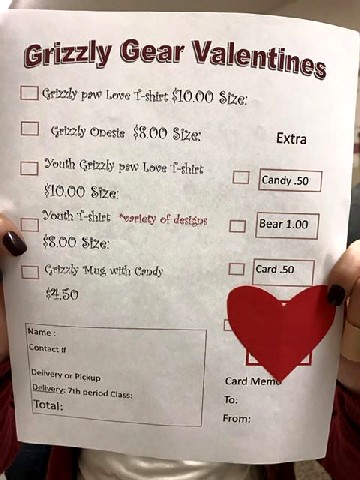 Grizzly Gear Valentines
Grizzly paw Love T-shirt $10.00 Size:
Grizzly Onesie $8.00 Size:
Extra
Youth Grizzly paw Love T-shirt
$10.00 Size:
Candy .50
Youth T-shirt *variety of designs
$8.00 Size:
Bear 1.00
Grizzly Mug with Candy
$4.50
Card .50
Name :
Contact #
Delivery or Pickup
Delivery: 7th period Class:
Total:
Card Memo
To:
From: